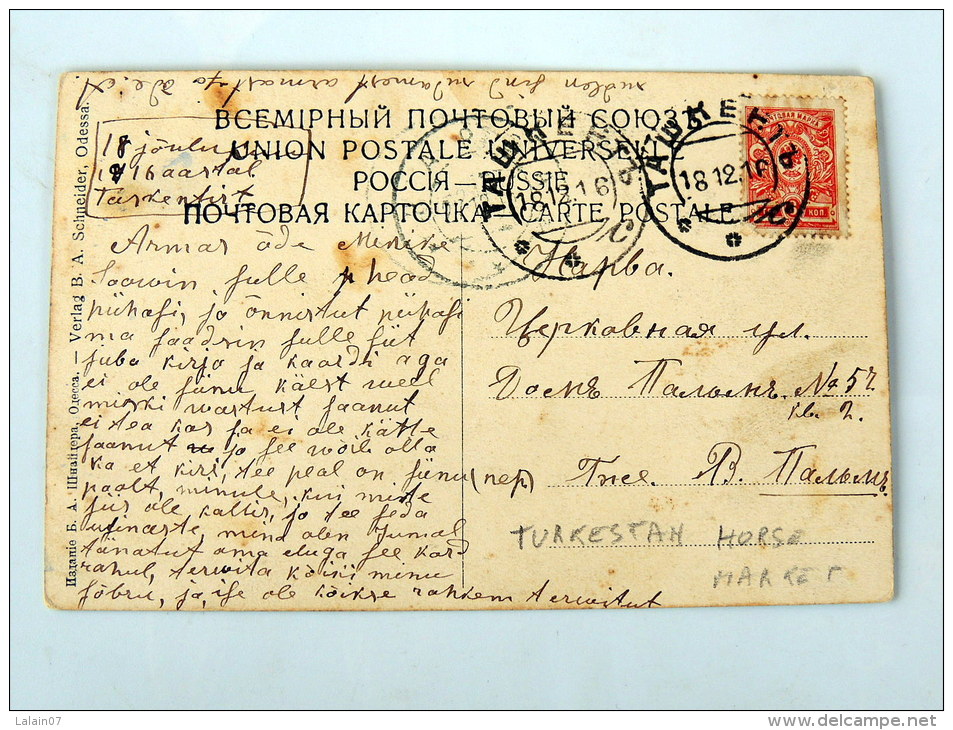 südlen sind südamest armast
ВСЕМІРНЫЙ ПОЧТОВЫЙ СОЮЗЪ
UNION POSTALE UNIVERSELLE
РОССІЯ — RUSSIE
ПОЧТОВАЯ КАРТОЧКА — CARTE POSTALE
18 jõulu
1916 aastal
Taškentist
ТАШКЕНТЪ
18 12 16
ТАШКЕНТЪ
18.12.16
ПОЧТОВАЯ МАРКА
КОП.
Armas õde
Soowin sulle head
pühasi, ja õnnistut pühasi
ma saadsin sulle siit
juba kirja ja kaardi aga
ei ole sinu käest weel
miski wastust saanut
ei tea kas sa ei ole kätte
saanut ja see wõib olla
ka et kiri tee peal on sinu
poolt, minule, kui mitte
siis ole kallis, ja tee seda
usinaste, mina olen Jumal
tänatut oma eluga see kord
rahul, terwita kõiki minu
sõbru, ja ise ole kõikse rohkem terwitut
Нарва.
Церковная ул.
Домъ Пальмъ. № 57
кв. 2.
(пер) Гже. В. Пальмъ.
TURKESTAN HORSE
MARKET
Изданіе Б. А. Шнайдера, Одесса. — Verlag B. A. Schneider, Odessa.
Lalain07
delcampe.net